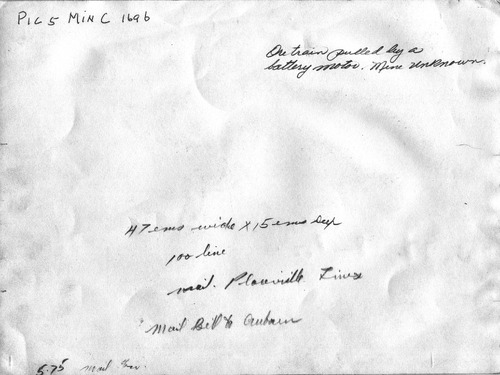 PIC 5 MIN C 1696
Ore train pulled by a
battery motor. Mine unknown.
47 ems wide x 15 ems deep
100 line
mail. Placerville Times
Mail Bill to Auburn
5.75 mail